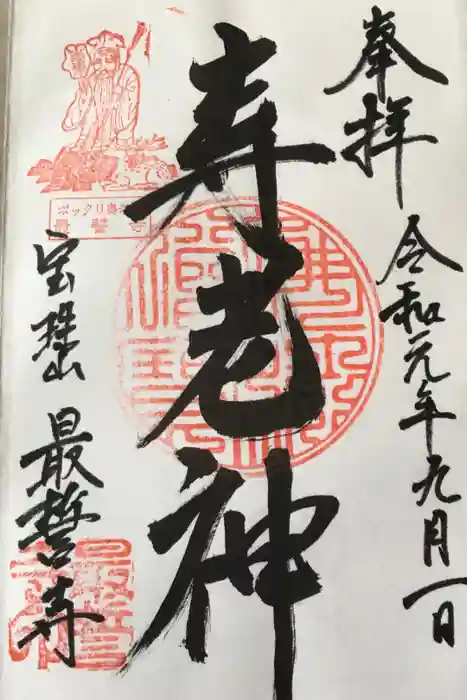 奉拝
令和元年九月一日
寿老神
ポックリ
最誓寺
宝珠山
最誓寺